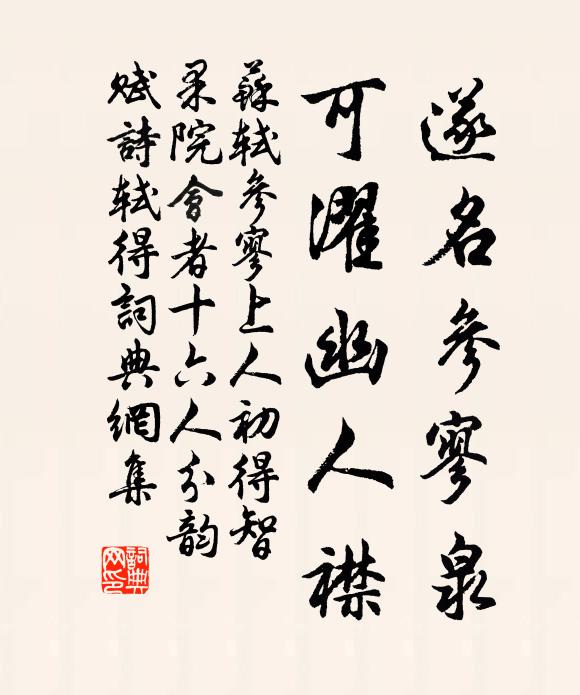 遂名參寥泉
可濯幽人襟
蘇軾參寥上人初得智
果院會者十六人分韵
賦詩軾得詞典網集
詞典
网印